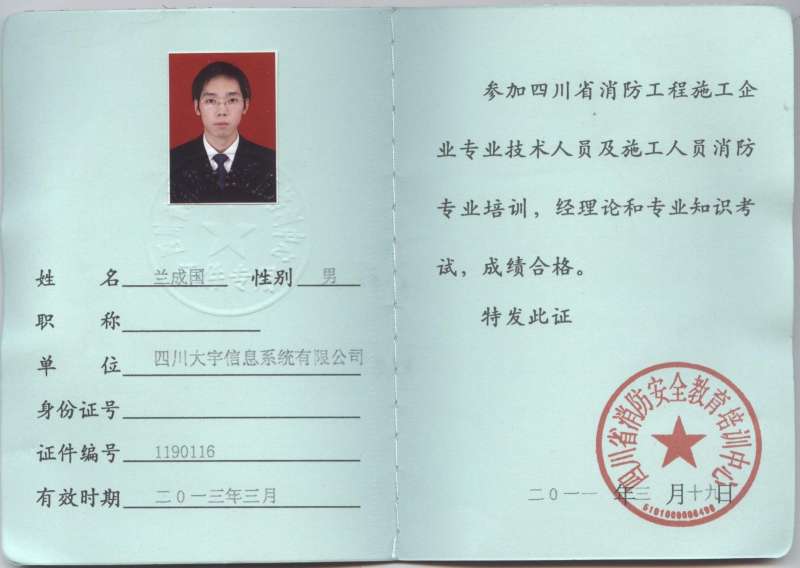 姓 名 兰成国 性别 男
职 称
单 位 四川大宇信息系统有限公司
身份证号
证件编号 1190116
有效时期 二0一三年三月
参加四川省消防工程施工企
业专业技术人员及施工人员消防
专业培训，经理论和专业知识考
试，成绩合格。
特发此证
四川省消防安全教育培训中心
二0一一 年三 月十九日